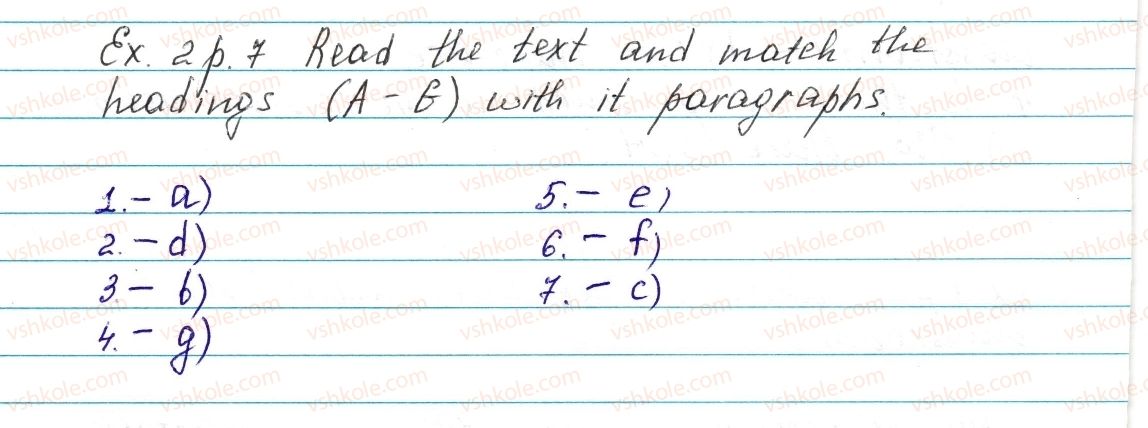 Ex. 2 p. 7 Read the text and match the
headings (A - G) with it paragraphs.
1. - a) 5. - e)
2. - d) 6. - f)
3 - b) 7. - c)
4. - g)